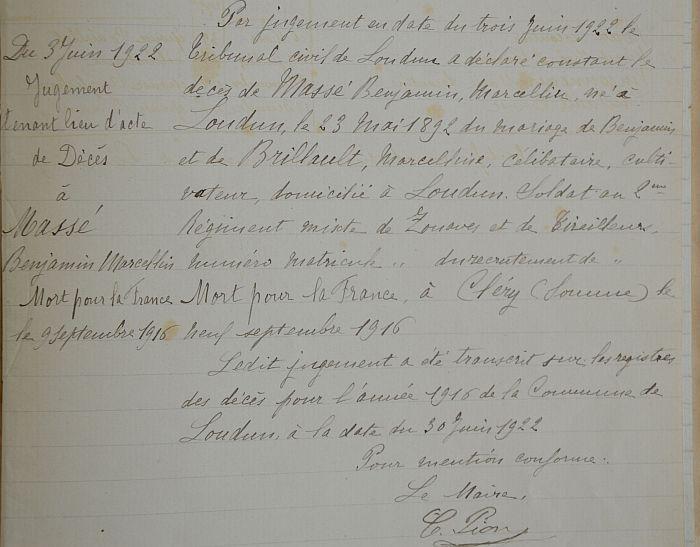 Du 3 Juin 1922
Jugement
tenant lieu d'acte
de Décès
à
Massé
Benjamin Marcellin
Mort pour la France
le 9 septembre 1916
Par jugement en date du trois Juin 1922 le
Tribunal civil de Loudun a déclaré constant le
décès de Massé Benjamin, Marcellin, né à
Loudun, le 23 Mai 1892 du mariage de Benjamin
et de Brillault, Marcelline, célibataire, culti-
vateur, domicilié à Loudun. Soldat au 2me
Régiment mixte de Zouaves et de Tirailleurs,
numéro matricule " du recrutement de "
Mort pour la France, à Cléry (Somme) le
neuf septembre 1916
Ledit jugement a été transcrit sur les registres
des décès pour l'année 1916 de la Commune de
Loudun, à la date du 30 Juin 1922
Pour mention conforme:
Le Maire,
C. Pion